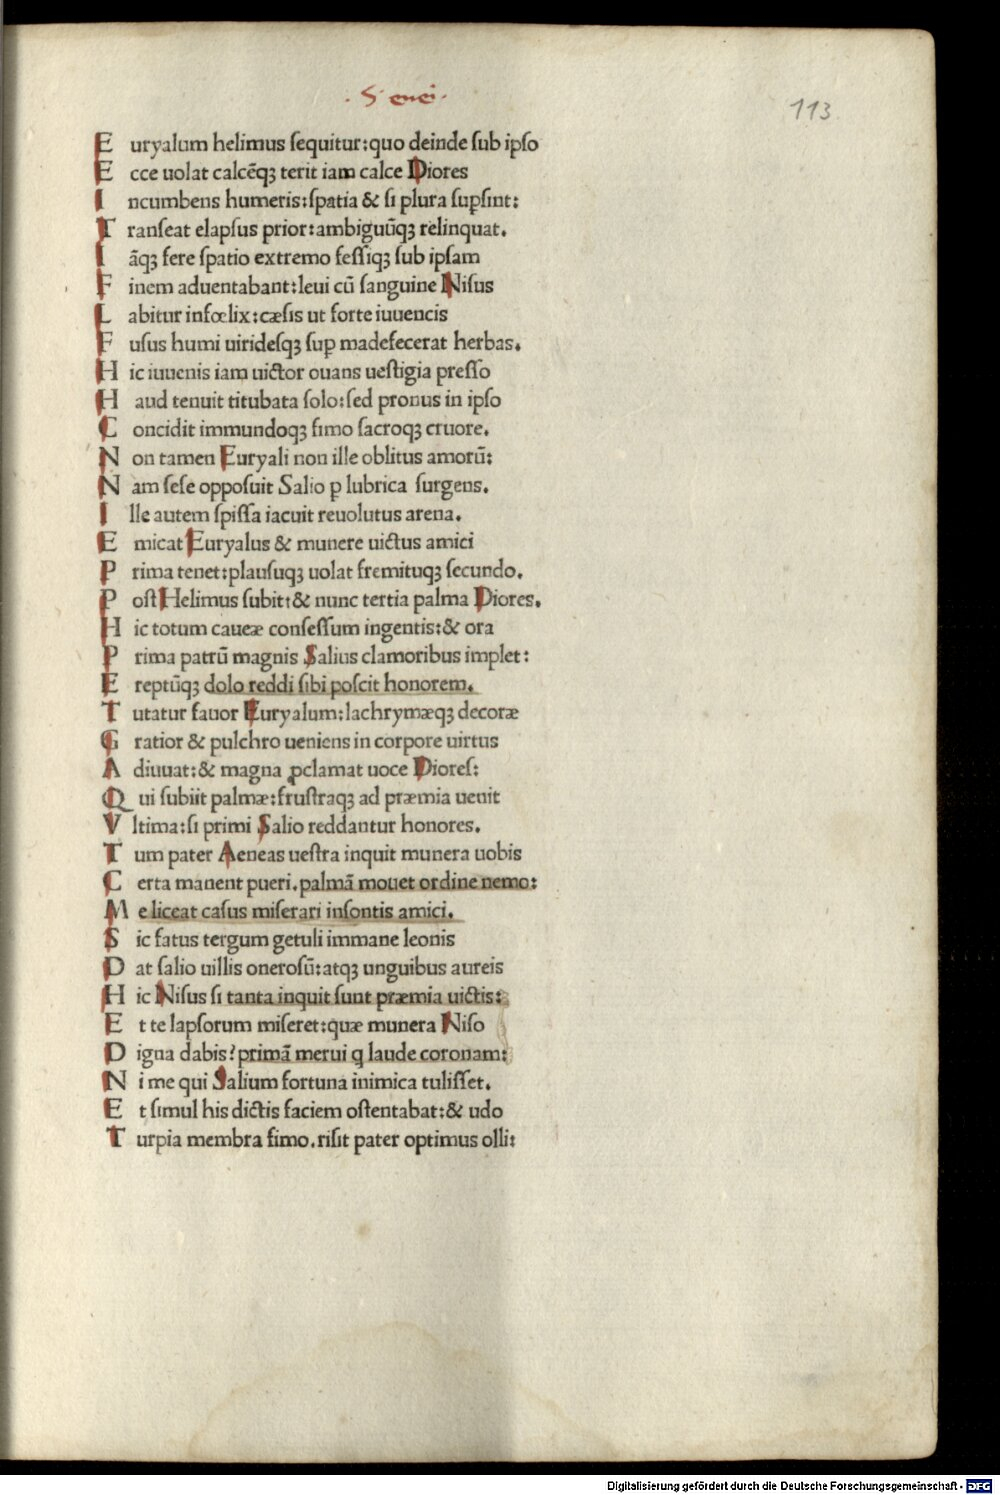 · 5 enei ·
113
E uryalum helimus ſequitur:quo deinde ſub ipſo
E cce uolat calcēqꝫ terit iam calce Diores
I ncumbens humeris:ſpatia & ſi plura suꝑſint:
T ranſeat elapſus prior:ambiguūqꝫ relinquat.
I āqꝫ fere ſpatio extremo feſſiqꝫ ſub ipſam
F inem aduentabant:leui cū ſanguine Niſus
L abitur infœlix:cæſis ut forte iuuencis
F uſus humi uirideſqꝫ ſuꝑ madefecerat herbas.
H ic iuuenis iam uictor ouans ueſtigia preſſo
H aud tenuit titubata ſolo:ſed pronus in ipſo
C oncidit immundoqꝫ fimo ſacroqꝫ cruore.
N on tamen Euryali non ille oblitus amorū:
N am ſeſe oppoſuit Salio ꝑ lubrica ſurgens.
I lle autem ſpiſſa iacuit reuolutus arena.
E micat Euryalus & munere uictus amici
P rima tenet:plauſuqꝫ uolat fremituqꝫ ſecundo.
P oſt Helimus ſubit:& nunc tertia palma Diores.
H ic totum caueæ conſeſſum ingentis:& ora
P rima patrū magnis Salius clamoribus implet:
E reptūqꝫ dolo reddi ſibi poſcit honorem.
T utatur fauor Euryalum:lachrymæqꝫ decoræ
G ratior & pulchro ueniens in corpore uirtus
A diuuat:& magna ꝓclamat uoce Dioreſ:
Q ui ſubiit palmæ:fruſtraqꝫ ad præmia uenit
V ltima:ſi primi Salio reddantur honores.
T um pater Aeneas ueſtra inquit munera uobis
C erta manent pueri.palmā mouet ordine nemo:
M e liceat caſus miſerari inſontis amici.
S ic fatus tergum getuli immane leonis
D at ſalio uillis oneroſū:atqꝫ unguibus aureis
H ic Niſus ſi tanta inquit ſunt præmia uictis:
E t te lapſorum miſeret:quæ munera Niſo
D igna dabis?primā merui ꝗ laude coronam:
N i me qui Salium fortuna inimica tuliſſet.
E t ſimul his dictis faciem oſtentabat:& udo
T urpia membra fimo.riſit pater optimus olli:
Digitalisierung gefördert durch die Deutsche Forschungsgemeinschaft - DFG